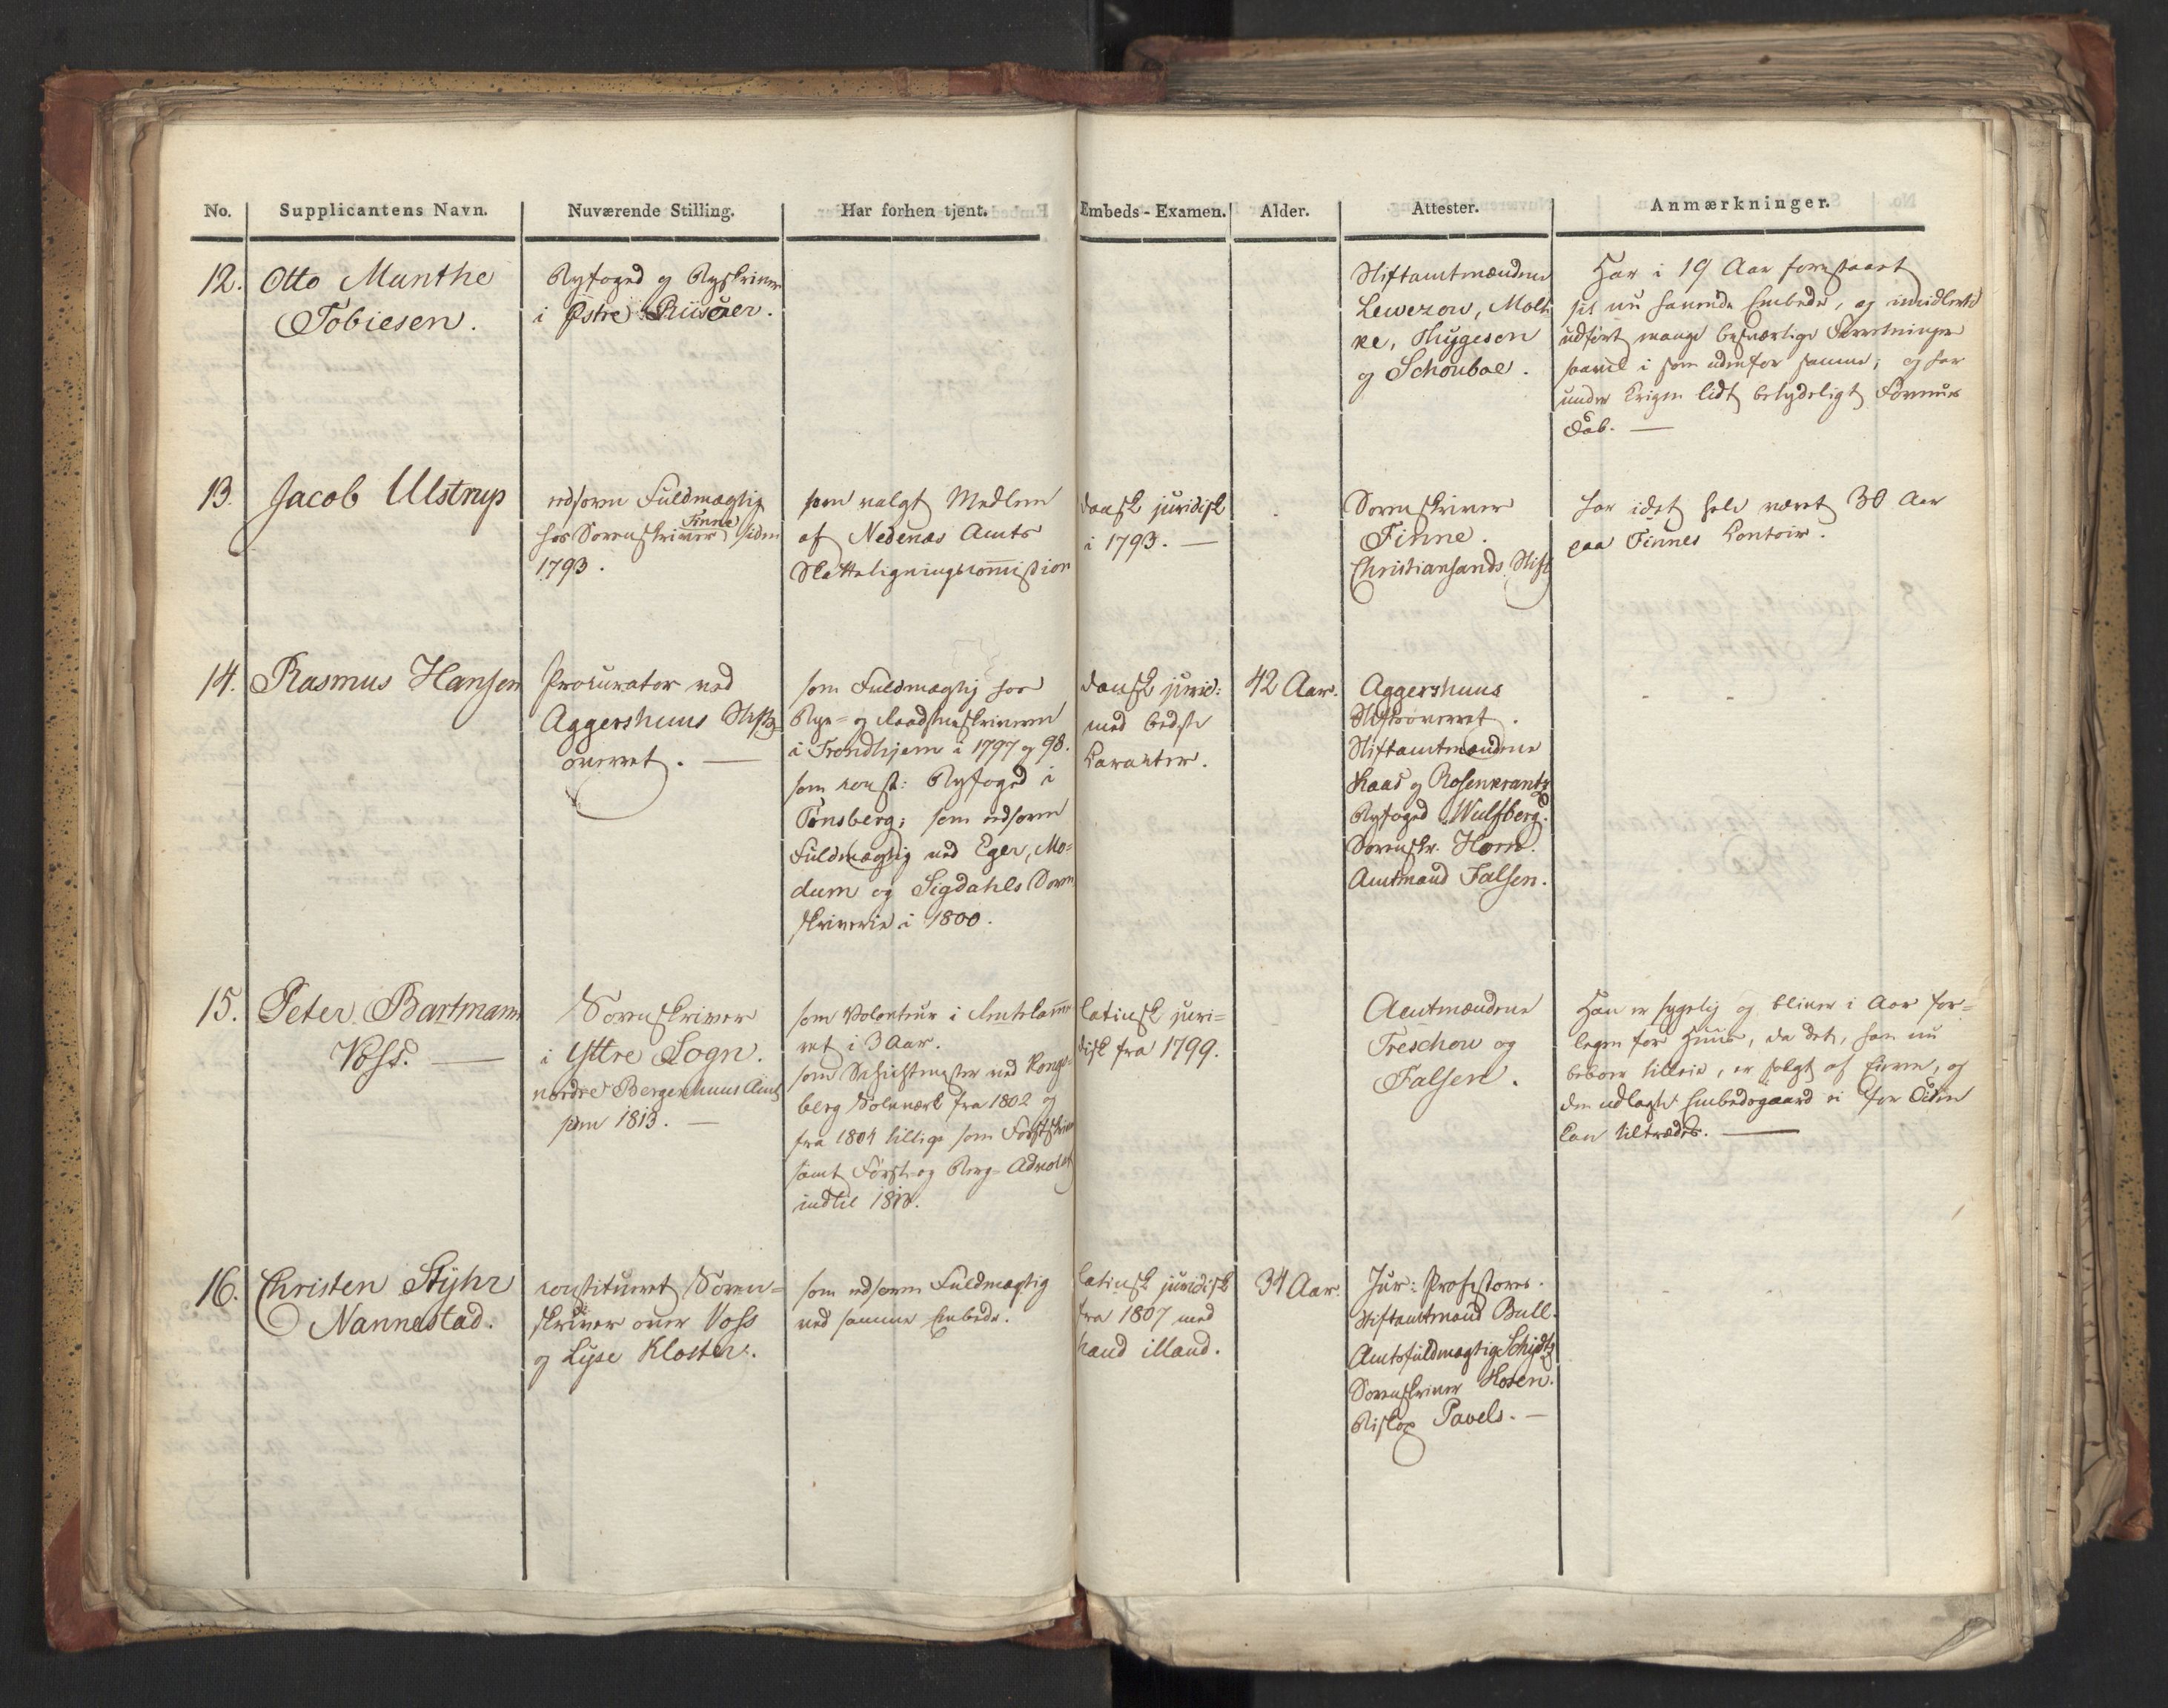 No.
Supplicantens Navn.
Nuværende Stilling.
Har forhen tjent.
Embeds-Examen.
Alder.
Attester.
Anmærkninger.
12.
Otto Munthe
Tobiesen.
Byfoged og Byskriver
i Østre Riisöer.
Stiftamtmændene
Lewezow, Molt-
ke, Thygeson
og Schouboe.
Har i 19 Aar forestaaet
sit nu havende Embede, og imidlertid
udført mange besværlige Forretninger
saavel i som udenfor samme; og har
under Krigen lidt betydeligt Formues
Tab. —
13.
Jacob Ulstrup
edsvoren Fuldmægtig
hos Sorenskriver Finne siden
1793.
som valgt Medlem
af Nedenæs Amts
Skatteligningscommission
dansk juridisk
i 1793. —
Sorenskriver
Finne.
Christiansands Stift
har idet hele været 30 Aar
paa Finnes Contoir.
14.
Rasmus Hansen
Procurator ved
Aggershuus Stifts-
overret. —
som Fuldmægtig hos
Bye- og Raadstueskriveren
i Trondhjem i 1797 og 98.
som const: Byfoged i
Tønsberg; som edsvoren
Fuldmægtig ved Eger, Mo-
dum og Sigdahls Soren
skriverie i 1800.
dansk jurid:
med bedste
Caracter.
42 Aar.
Aggershuus
Stiftsoverret.
Stiftamtmændene
Kaas og Rosenkrantz
Byfoged Wulfsberg.
Sorenskr. Horn.
Amtmand Falsen.
15.
Peter Bartmann
Voss. —
Sorenskriver
i Yttre Sogn.
nordre Bergenhuus Amt
siden 1813. —
som Volonteur i Rentekamme
ret i 3 Aar.
som Schichtmester ved Kongs-
berg Sølvværk fra 1802 og
fra 1804 tillige som Forstskriver
samt Forst- og Berg-Advocat
indtil 1813.
latinsk juri-
disk fra 1799.
Amtmændene
Treschow og
Falsen.
Han er sygelig og bliver i Aar for-
legen for Huus, da det, han nu
beboer tilleie, er solgt af Eieren, og
den udlagte Embedsgaard ei før Tiden
kan tiltrædes. —
16.
Christen Styhr
Nannestad.
constitueret Soren-
skriver over Voss
og Lyse Kloster.
som edsvoren Fuldmægtig
ved samme Embede.
latinsk juridisk
fra 1807 med
haud illaud.
34 Aar.
Jur: Professorer.
Stiftamtmand Bull.
Amtsfuldmægtig Schydtz
Sorenskriver Koren.
Biskop Pavels. —